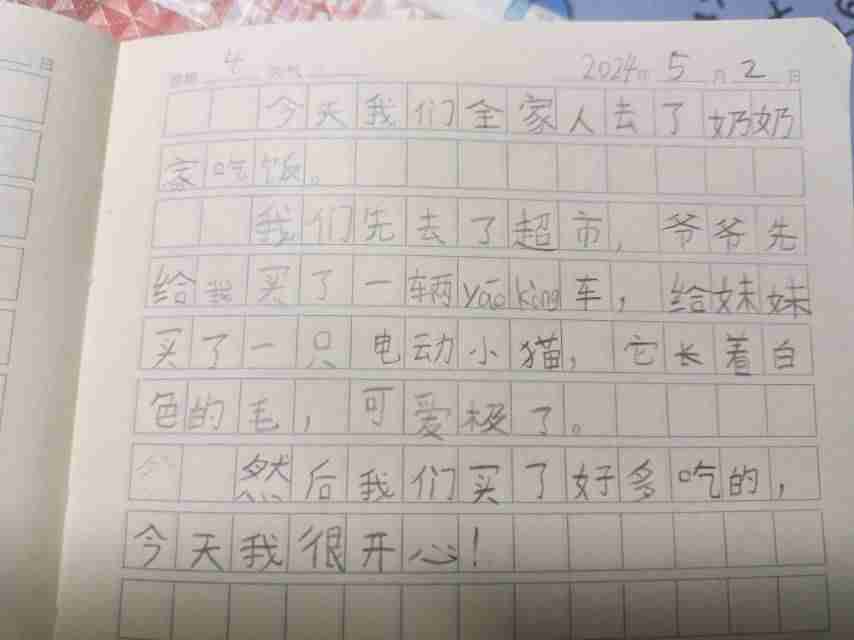 星期 4 天气 2024年 5 月 2 日
今天我们全家人去了奶奶
家吃饭。
我们先去了超市，爷爷先
给我买了一辆yáo kòng车，给妹妹
买了一只电动小猫，它长着白
色的毛，可爱极了。
然后我们买了好多吃的，
今天我很开心！